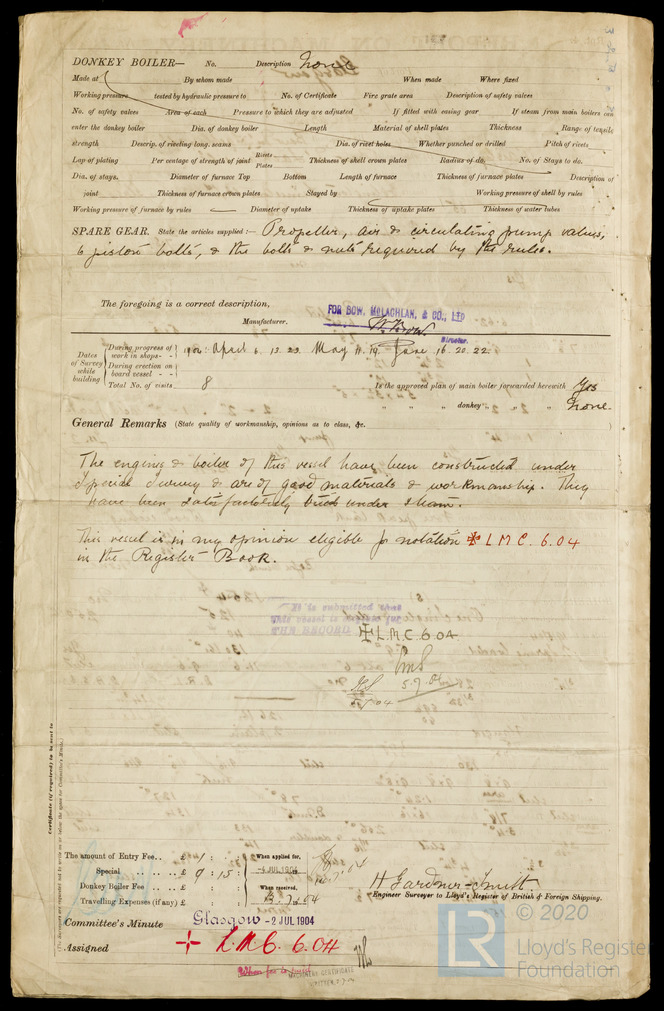 DONKEY BOILER— No. Description None
Made at By whom made When made Where fixed
Working pressure tested by hydraulic pressure to No. of Certificate Fire grate area Description of safety valves
No. of safety valves Area of each Pressure to which they are adjusted If fitted with easing gear If steam from main boilers can
enter the donkey boiler Dia. of donkey boiler Length Material of shell plates Thickness Range of tensile
strength Descrip. of riveting long. seams Dia. of rivet holes Whether punched or drilled Pitch of rivets
Lap of plating Per centage of strength of joint Rivets Plates Thickness of shell crown plates Radius of do. No. of Stays to do.
Dia. of stays. Diameter of furnace Top Bottom Length of furnace Thickness of furnace plates Description of
joint Thickness of furnace crown plates Stayed by Working pressure of shell by rules
Working pressure of furnace by rules Diameter of uptake Thickness of uptake plates Thickness of water tubes
SPARE GEAR. State the articles supplied:— Propeller, air & circulating pump valves,
6 piston bolts, & the bolts & nuts required by the rules.
The foregoing is a correct description,
FOR BOW, McLACHLAN, & CO., LTD
Manufacturer. W. Bow.
Director.
Dates of Survey while building
During progress of work in shops - - 1904: April 6. 13. 23. May 11. 19. June 16. 20. 22.
During erection on board vessel - - -
Total No. of visits 8 Is the approved plan of main boiler forwarded herewith Yes
" " donkey " " " None.
General Remarks (State quality of workmanship, opinions as to class, &c.
The engines & boiler of this vessel have been constructed under
Special Survey & are of good materials & workmanship. They
have been satisfactorily tried under steam.
This vessel is in my opinion eligible for notation ✠ L M C. 6.04
in the Register Book.
It is submitted that
this vessel is eligible for
THE RECORD ✠ L.M.C. 6.04
5.7.04
Certificate (if required) to be sent to
The amount of Entry Fee.. £ 1 : :
Special £ 9 : 15 :
Donkey Boiler Fee £ : :
Travelling Expenses (if any) £ : :
When applied for,
-4 JUL 1904
When received,
H Gardner-Smith
Engineer Surveyor to Lloyd's Register of British & Foreign Shipping.
Committee's Minute Glasgow - 2 JUL 1904
Assigned + L.M.C. 6.04
MACHINERY CERTIFICATE
WRITTEN
© 2020
LR Lloyd's Register
Foundation